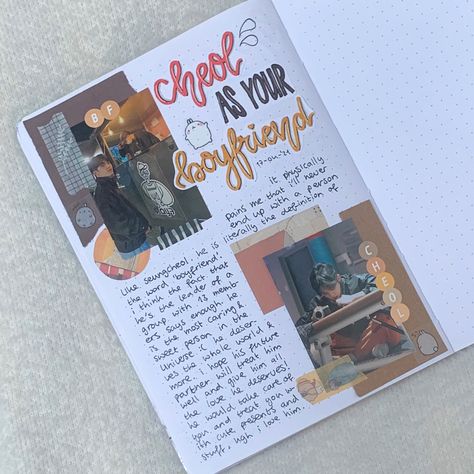 cheol
AS YOUR
boyfriend
BF
17-04-'21
it physically
pains me that i'll never
end up with a person
literally the definition of
Like seungcheol. he is
the word 'boyfriend'.
i think the fact that
he's the leader of a
group with 13 memb-
ers says enough. he
is the most caring &
sweet person in the
universe :( he deser-
ves the whole world &
more. i hope his future
partner will treat him
well and give him all
the love he deserves!
he would take care of
you and treat you w-
ith cute presents and
stuff, ugh i love him.
CHEOL